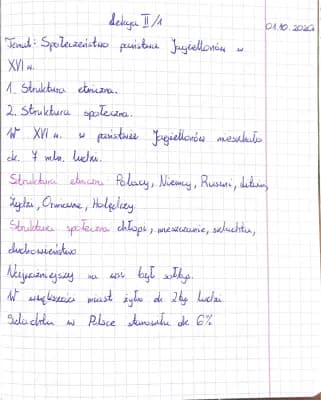 Lekcja II/1
01.10.202
Temat: Społeczeństwo państwa Jagiellonów w
XVI w.
1. Struktura etniczna.
2. Struktura społeczna.
W XVI w. w państwie Jagiellonów mieszkało
ok. 7 mln. ludzi.
Struktura etniczna Polacy, Niemcy, Rusini, Litwini,
Żydzi, Ormianie, Holędrzy.
Struktura społeczna chłopi, mieszczanie, szlachta,
duchowieństwo
Najważniejszy na wsi był sołtys.
W większości miast żyło ok 2tyś ludzi.
Szlachta w Polsce stanowiła ok 6%